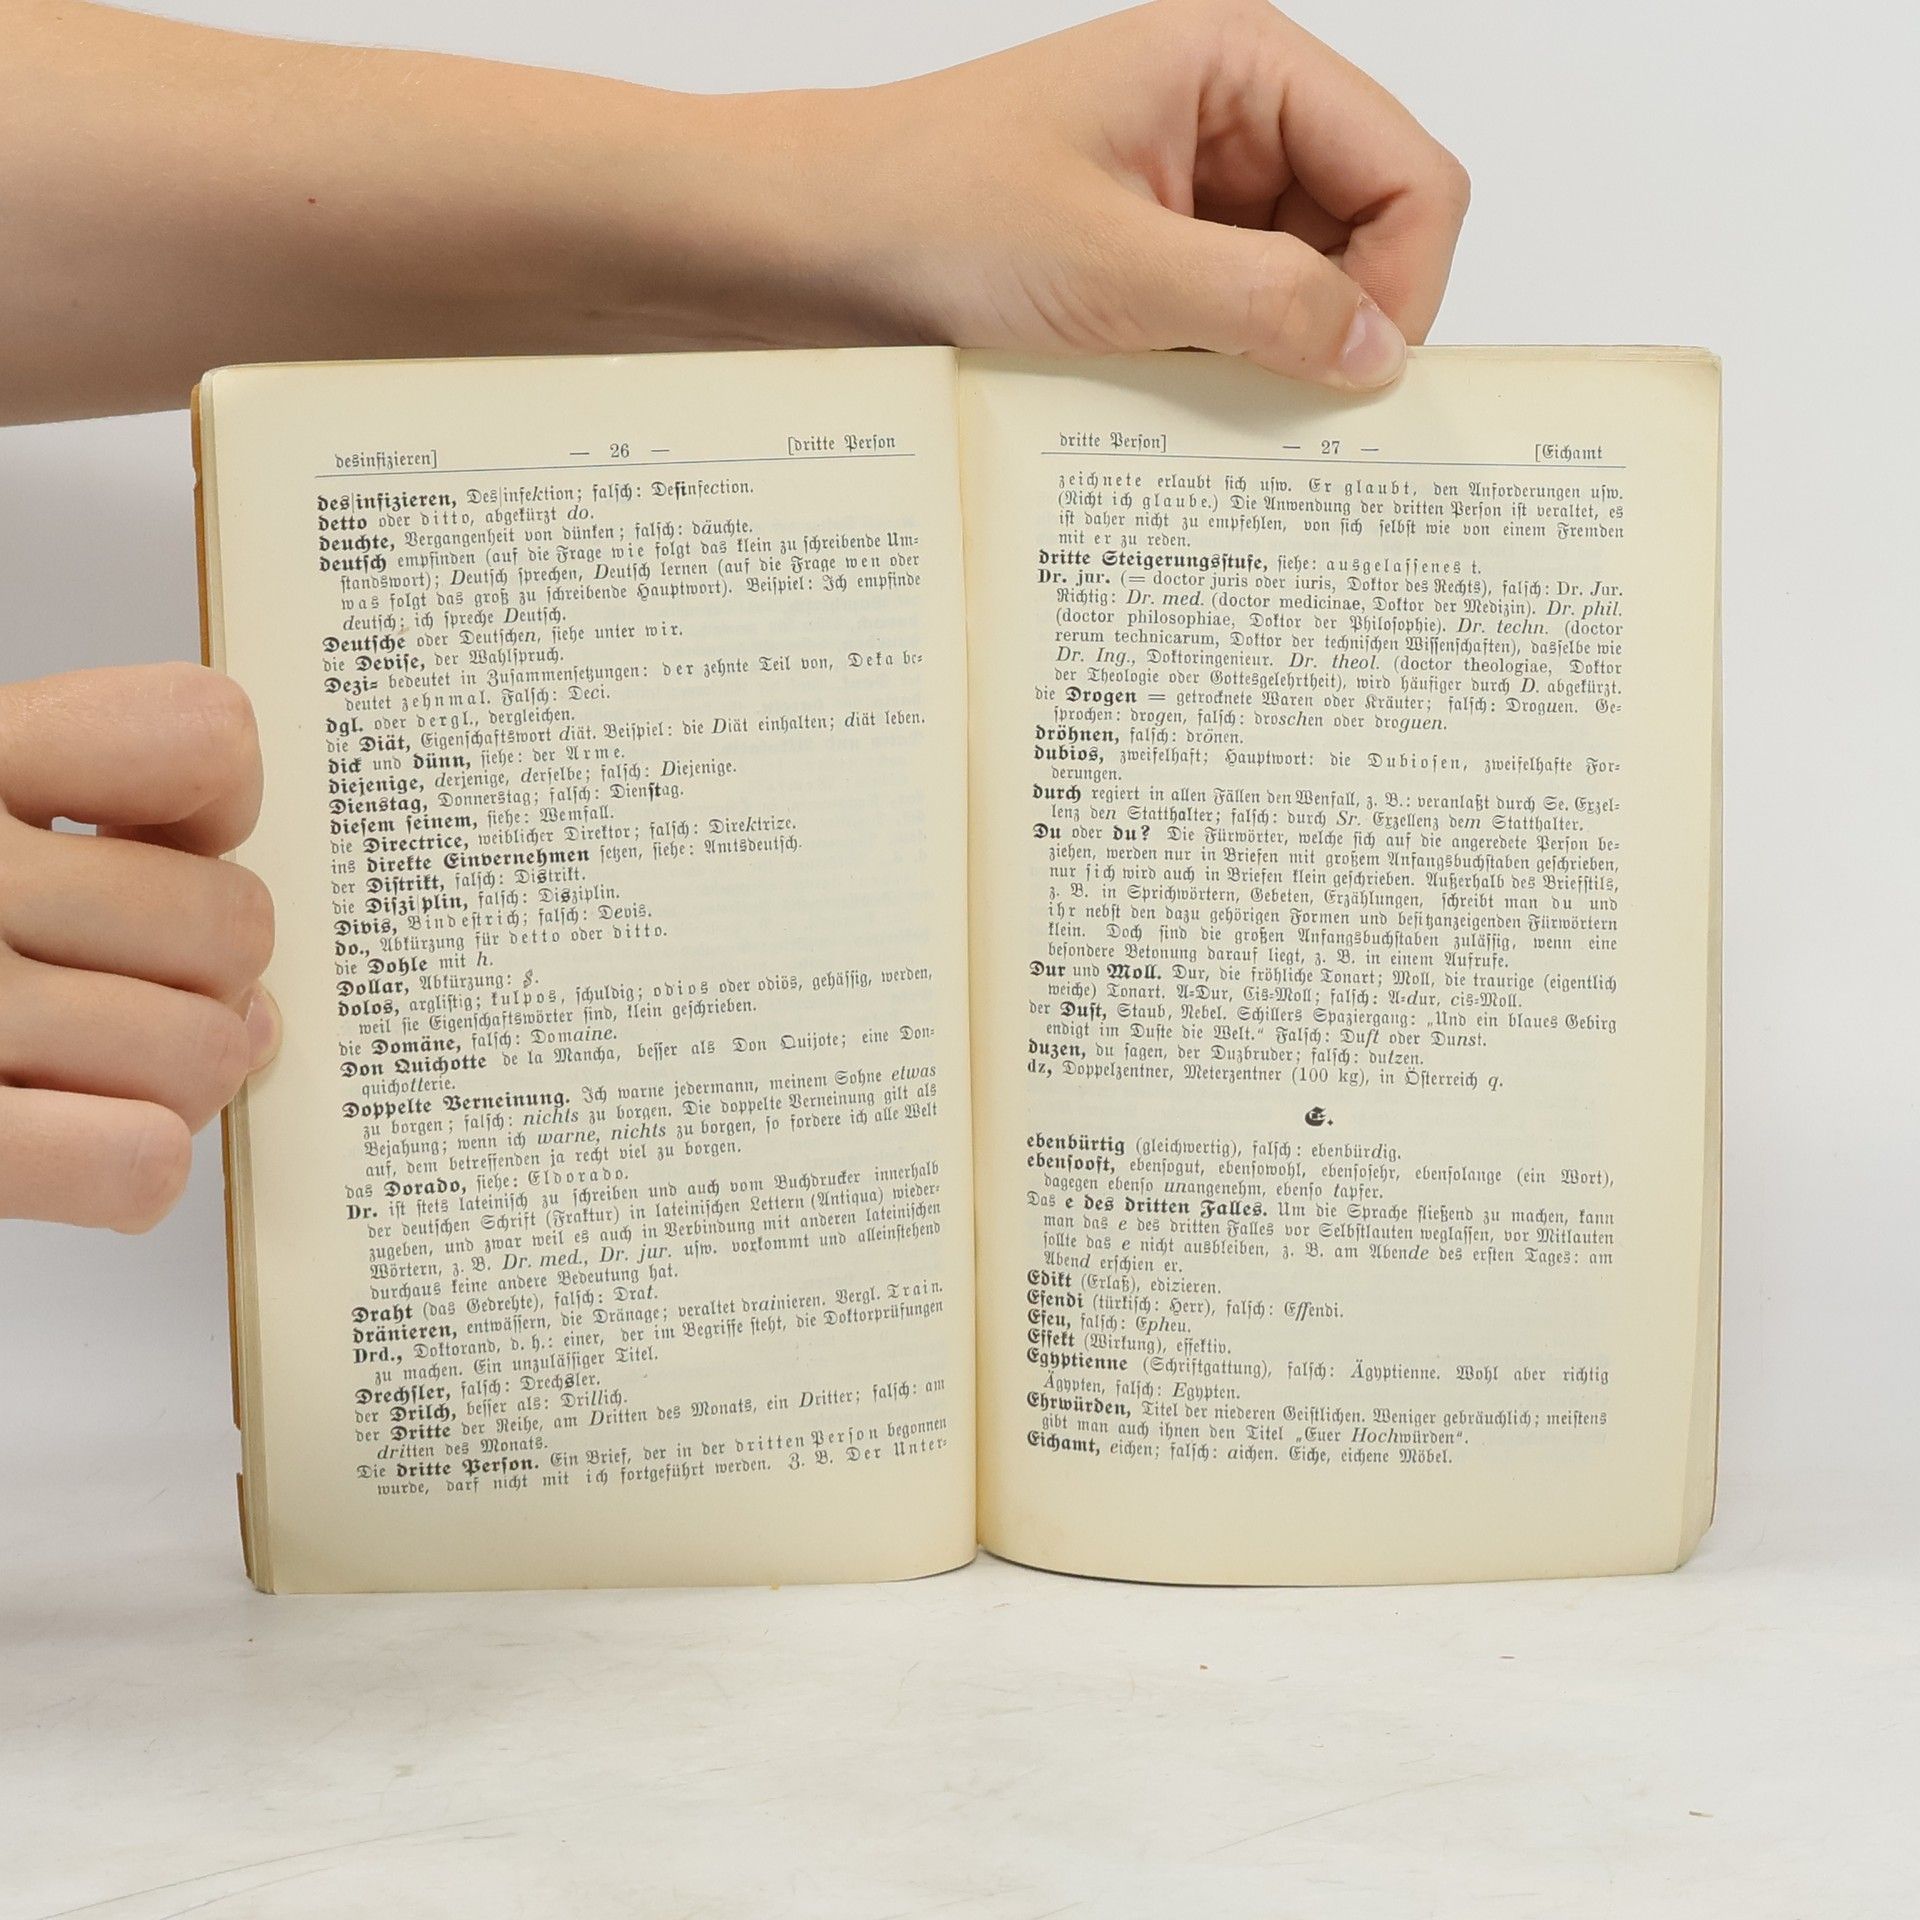 desinfizieren] — 26 — [dritte Perſon
des|infizieren, Des|infektion; falſch: Deſinfection.
detto oder ditto, abgekürzt do.
deuchte, Vergangenheit von dünken; falſch: däuchte.
deutſch empfinden (auf die Frage wie folgt das klein zu ſchreibende Um-
ſtandswort); Deutſch ſprechen, Deutſch lernen (auf die Frage wen oder
was folgt das groß zu ſchreibende Hauptwort). Beiſpiel: Ich empfinde
deutſch; ich ſpreche Deutſch.
Deutſche oder Deutſchen, ſiehe unter wir.
die Deviſe, der Wahlſpruch.
Dezi- bedeutet in Zuſammenſetzungen: der zehnte Teil von, Deka be-
deutet zehnmal. Falſch: Deci.
dgl. oder dergl., dergleichen.
die Diät, Eigenſchaftswort diät. Beiſpiel: die Diät einhalten; diät leben.
dick und dünn, ſiehe: der Arme.
diejenige, derjenige, derſelbe; falſch: Diejenige.
Dienstag, Donnerstag; falſch: Dienſtag.
dieſem ſeinem, ſiehe: Wemfall.
die Directrice, weiblicher Direktor; falſch: Direktrize.
ins direkte Einvernehmen ſetzen, ſiehe: Amtsdeutſch.
der Diſtrikt, falſch: Distrikt.
die Diſzi|plin, falſch: Disziplin.
Divis, Bindeſtrich; falſch: Devis.
do., Abkürzung für detto oder ditto.
die Dohle mit h.
Dollar, Abkürzung: $.
dolos, argliſtig; kulpos, ſchuldig; odios oder odiös, gehäſſig, werden,
weil ſie Eigenſchaftswörter ſind, klein geſchrieben.
die Domäne, falſch: Domaine.
Don Quichotte de la Mancha, beſſer als Don Quijote; eine Don-
quichotterie.
Doppelte Verneinung. Ich warne jedermann, meinem Sohne etwas
zu borgen; falſch: nichts zu borgen. Die doppelte Verneinung gilt als
Bejahung; wenn ich warne, nichts zu borgen, ſo fordere ich alle Welt
auf, dem betreffenden ja recht viel zu borgen.
das Dorado, ſiehe: Eldorado.
Dr. iſt ſtets lateiniſch zu ſchreiben und auch vom Buchdrucker innerhalb
der deutſchen Schrift (Fraktur) in lateiniſchen Lettern (Antiqua) wieder-
zugeben, und zwar weil es auch in Verbindung mit anderen lateiniſchen
Wörtern, z. B. Dr. med., Dr. jur. uſw. vorkommt und alleinſtehend
durchaus keine andere Bedeutung hat.
Draht (das Gedrehte), falſch: Drat.
dränieren, entwäſſern, die Dränage; veraltet drainieren. Vergl. Train.
Drd., Doktorand, d. h.: einer, der im Begriffe ſteht, die Doktorprüfungen
zu machen. Ein unzuläſſiger Titel.
Drechſler, falſch: Drechsler.
der Drilch, beſſer als: Drillich.
der Dritte der Reihe, am Dritten des Monats, ein Dritter; falſch: am
dritten des Monats.
Die dritte Perſon. Ein Brief, der in der dritten Perſon begonnen
wurde, darf nicht mit ich fortgeführt werden. Z. B. Der Unter-
dritte Perſon] — 27 — [Eichamt
zeichnete erlaubt ſich uſw. Er glaubt, den Anforderungen uſw.
(Nicht ich glaube.) Die Anwendung der dritten Perſon iſt veraltet, es
iſt daher nicht zu empfehlen, von ſich ſelbſt wie von einem Fremden
mit er zu reden.
dritte Steigerungsſtufe, ſiehe: ausgelaſſenes t.
Dr. jur. (= doctor juris oder iuris, Doktor des Rechts), falſch: Dr. Jur.
Richtig: Dr. med. (doctor medicinae, Doktor der Medizin). Dr. phil.
(doctor philosophiae, Doktor der Philoſophie). Dr. techn. (doctor
rerum technicarum, Doktor der techniſchen Wiſſenſchaften), dasſelbe wie
Dr. Ing., Doktoringenieur. Dr. theol. (doctor theologiae, Doktor
der Theologie oder Gottesgelehrtheit), wird häufiger durch D. abgekürzt.
die Drogen = getrocknete Waren oder Kräuter; falſch: Droguen. Ge-
ſprochen: drogen, falſch: droschen oder droguen.
dröhnen, falſch: drönen.
dubios, zweifelhaft; Hauptwort: die Dubioſen, zweifelhafte For-
derungen.
durch regiert in allen Fällen den Wenfall, z. B.: veranlaßt durch Se. Exzel-
lenz den Statthalter; falſch: durch Sr. Exzellenz dem Statthalter.
Du oder du? Die Fürwörter, welche ſich auf die angeredete Perſon be-
ziehen, werden nur in Briefen mit großem Anfangsbuchſtaben geſchrieben,
nur ſich wird auch in Briefen klein geſchrieben. Außerhalb des Briefſtils,
z. B. in Sprichwörtern, Gebeten, Erzählungen, ſchreibt man du und
ihr nebſt den dazu gehörigen Formen und beſitzanzeigenden Fürwörtern
klein. Doch ſind die großen Anfangsbuchſtaben zuläſſig, wenn eine
beſondere Betonung darauf liegt, z. B. in einem Aufrufe.
Dur und Moll. Dur, die fröhliche Tonart; Moll, die traurige (eigentlich
weiche) Tonart. A-Dur, Cis-Moll; falſch: A-dur, cis-Moll.
der Duft, Staub, Nebel. Schillers Spaziergang: „Und ein blaues Gebirg
endigt im Dufte die Welt.“ Falſch: Duft oder Dunst.
duzen, du ſagen, der Duzbruder; falſch: dutzen.
dz, Doppelzentner, Meterzentner (100 kg), in Öſterreich q.
E.
ebenbürtig (gleichwertig), falſch: ebenbürdig.
ebenſooft, ebenſogut, ebenſowohl, ebenſoſehr, ebenſolange (ein Wort),
dagegen ebenſo unangenehm, ebenſo tapfer.
Das e des dritten Falles. Um die Sprache fließend zu machen, kann
man das e des dritten Falles vor Selbſtlauten weglaſſen, vor Mitlauten
ſollte das e nicht ausbleiben, z. B. am Abende des erſten Tages: am
Abend erſchien er.
Edikt (Erlaß), edizieren.
Efendi (türkiſch: Herr), falſch: Effendi.
Efeu, falſch: Epheu.
Effekt (Wirkung), effektiv.
Egyptienne (Schriftgattung), falſch: Ägyptienne. Wohl aber richtig
Ägypten, falſch: Egypten.
Ehrwürden, Titel der niederen Geiſtlichen. Weniger gebräuchlich; meiſtens
gibt man auch ihnen den Titel „Euer Hochwürden“.
Eichamt, eichen; falſch: aichen. Eiche, eichene Möbel.